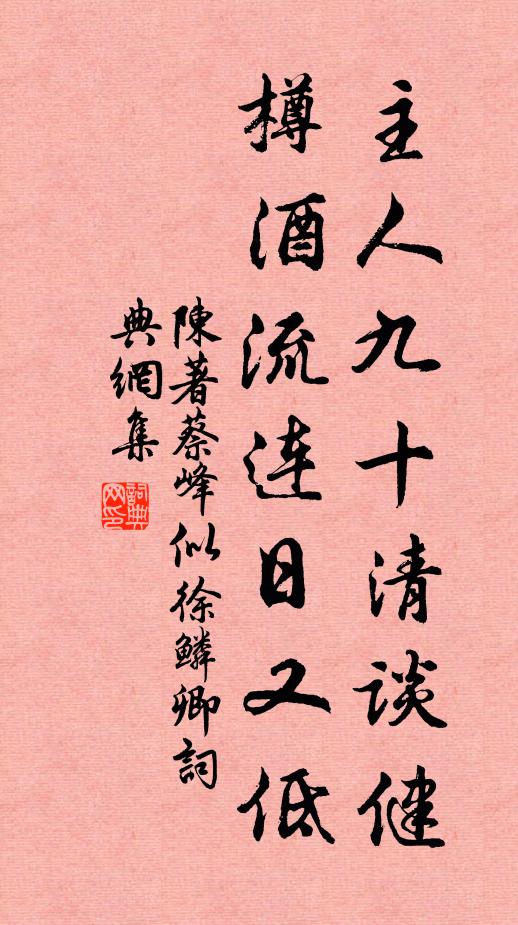 主人九十清談健
樽酒流連日又低
陳著蔡峰似徐鱗卿詞
典網集
詞典网印